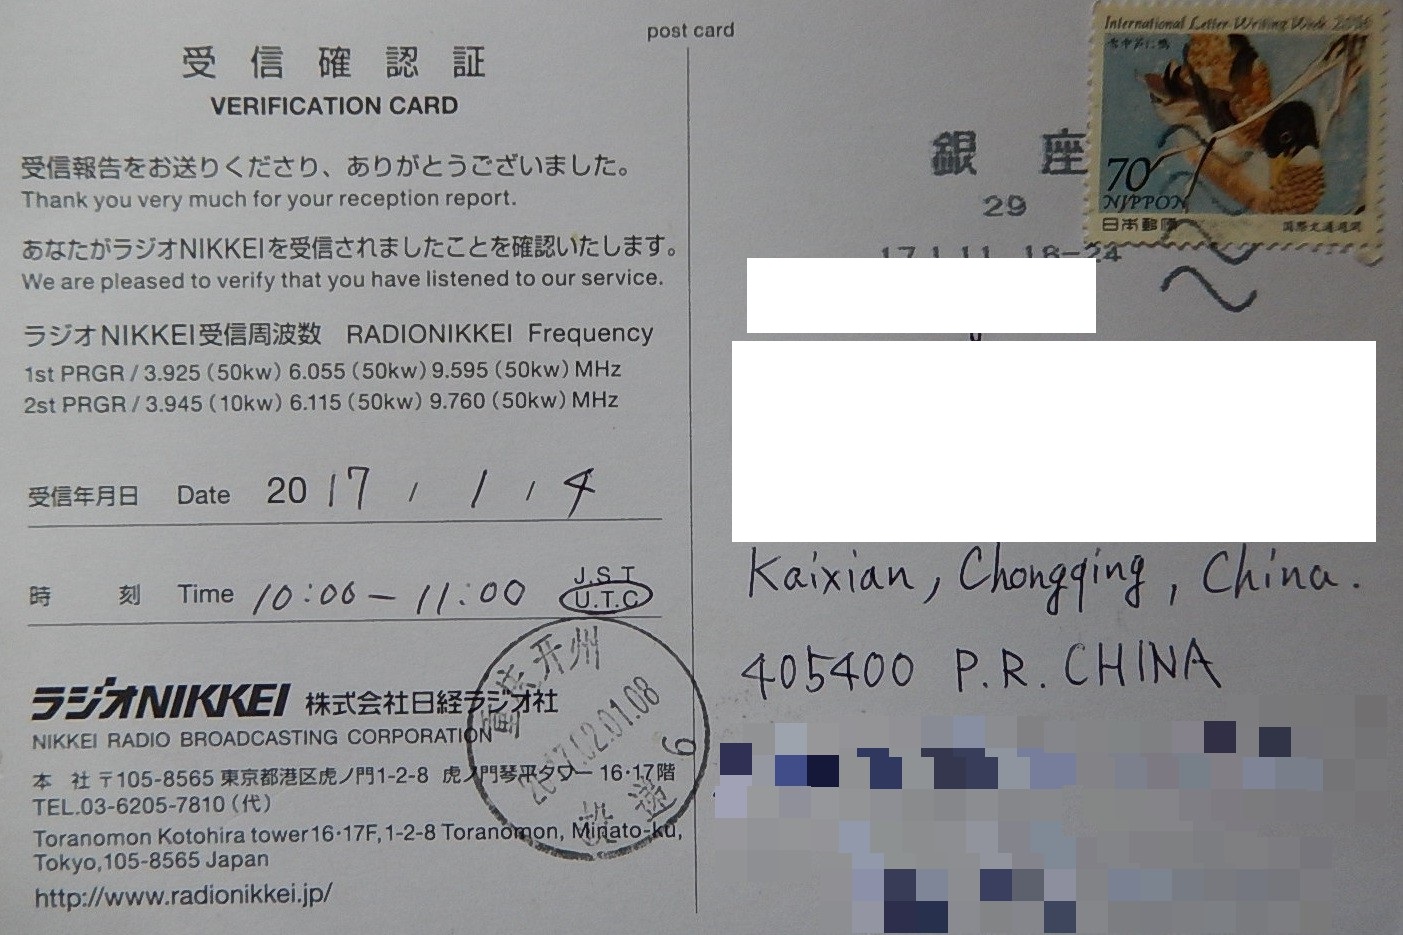 post card
受信確認証
VERIFICATION CARD
受信報告をお送りくださり、ありがとうございました。
Thank you very much for your reception report.
あなたがラジオNIKKEIを受信されましたことを確認いたします。
We are pleased to verify that you have listened to our service.
ラジオNIKKEI受信周波数 RADIONIKKEI Frequency
1st PRGR / 3.925 (50kw) 6.055 (50kw) 9.595 (50kw) MHz
2st PRGR / 3.945 (10kw) 6.115 (50kw) 9.760 (50kw) MHz
受信年月日 Date 2017 / 1 / 4
J.S.T
時刻 Time 10:06 — 11:00 U.T.C
ラジオNIKKEI 株式会社日経ラジオ社
NIKKEI RADIO BROADCASTING CORPORATION
本 社 〒105-8565 東京都港区虎ノ門1-2-8 虎ノ門琴平タワー 16・17階
TEL.03-6205-7810 (代)
Toranomon Kotohira tower 16・17F, 1-2-8 Toranomon, Minato-ku,
Tokyo, 105-8565 Japan
http://www.radionikkei.jp/
重庆开州
6
投递
International Letter Writing Week 2016
雪中芦に鴨
70
NIPPON
日本郵便
国際文通週間
銀座
29
17.1.11 18-24
Kaixian, Chongqing, China.
405400 P.R. CHINA